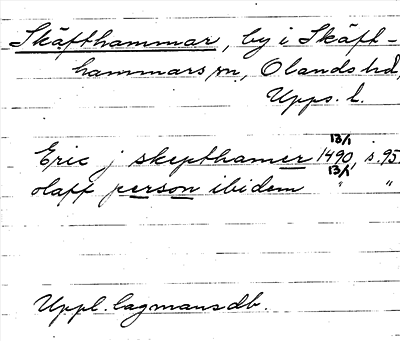 Skäfthammar, by i Skäft-
hammars sn, Olands hd,
Upps. l.
Eric j skepthamer 13/1 1490, s. 95
olaff person ibidem 13/1 " "
Uppl. lagmansdb.